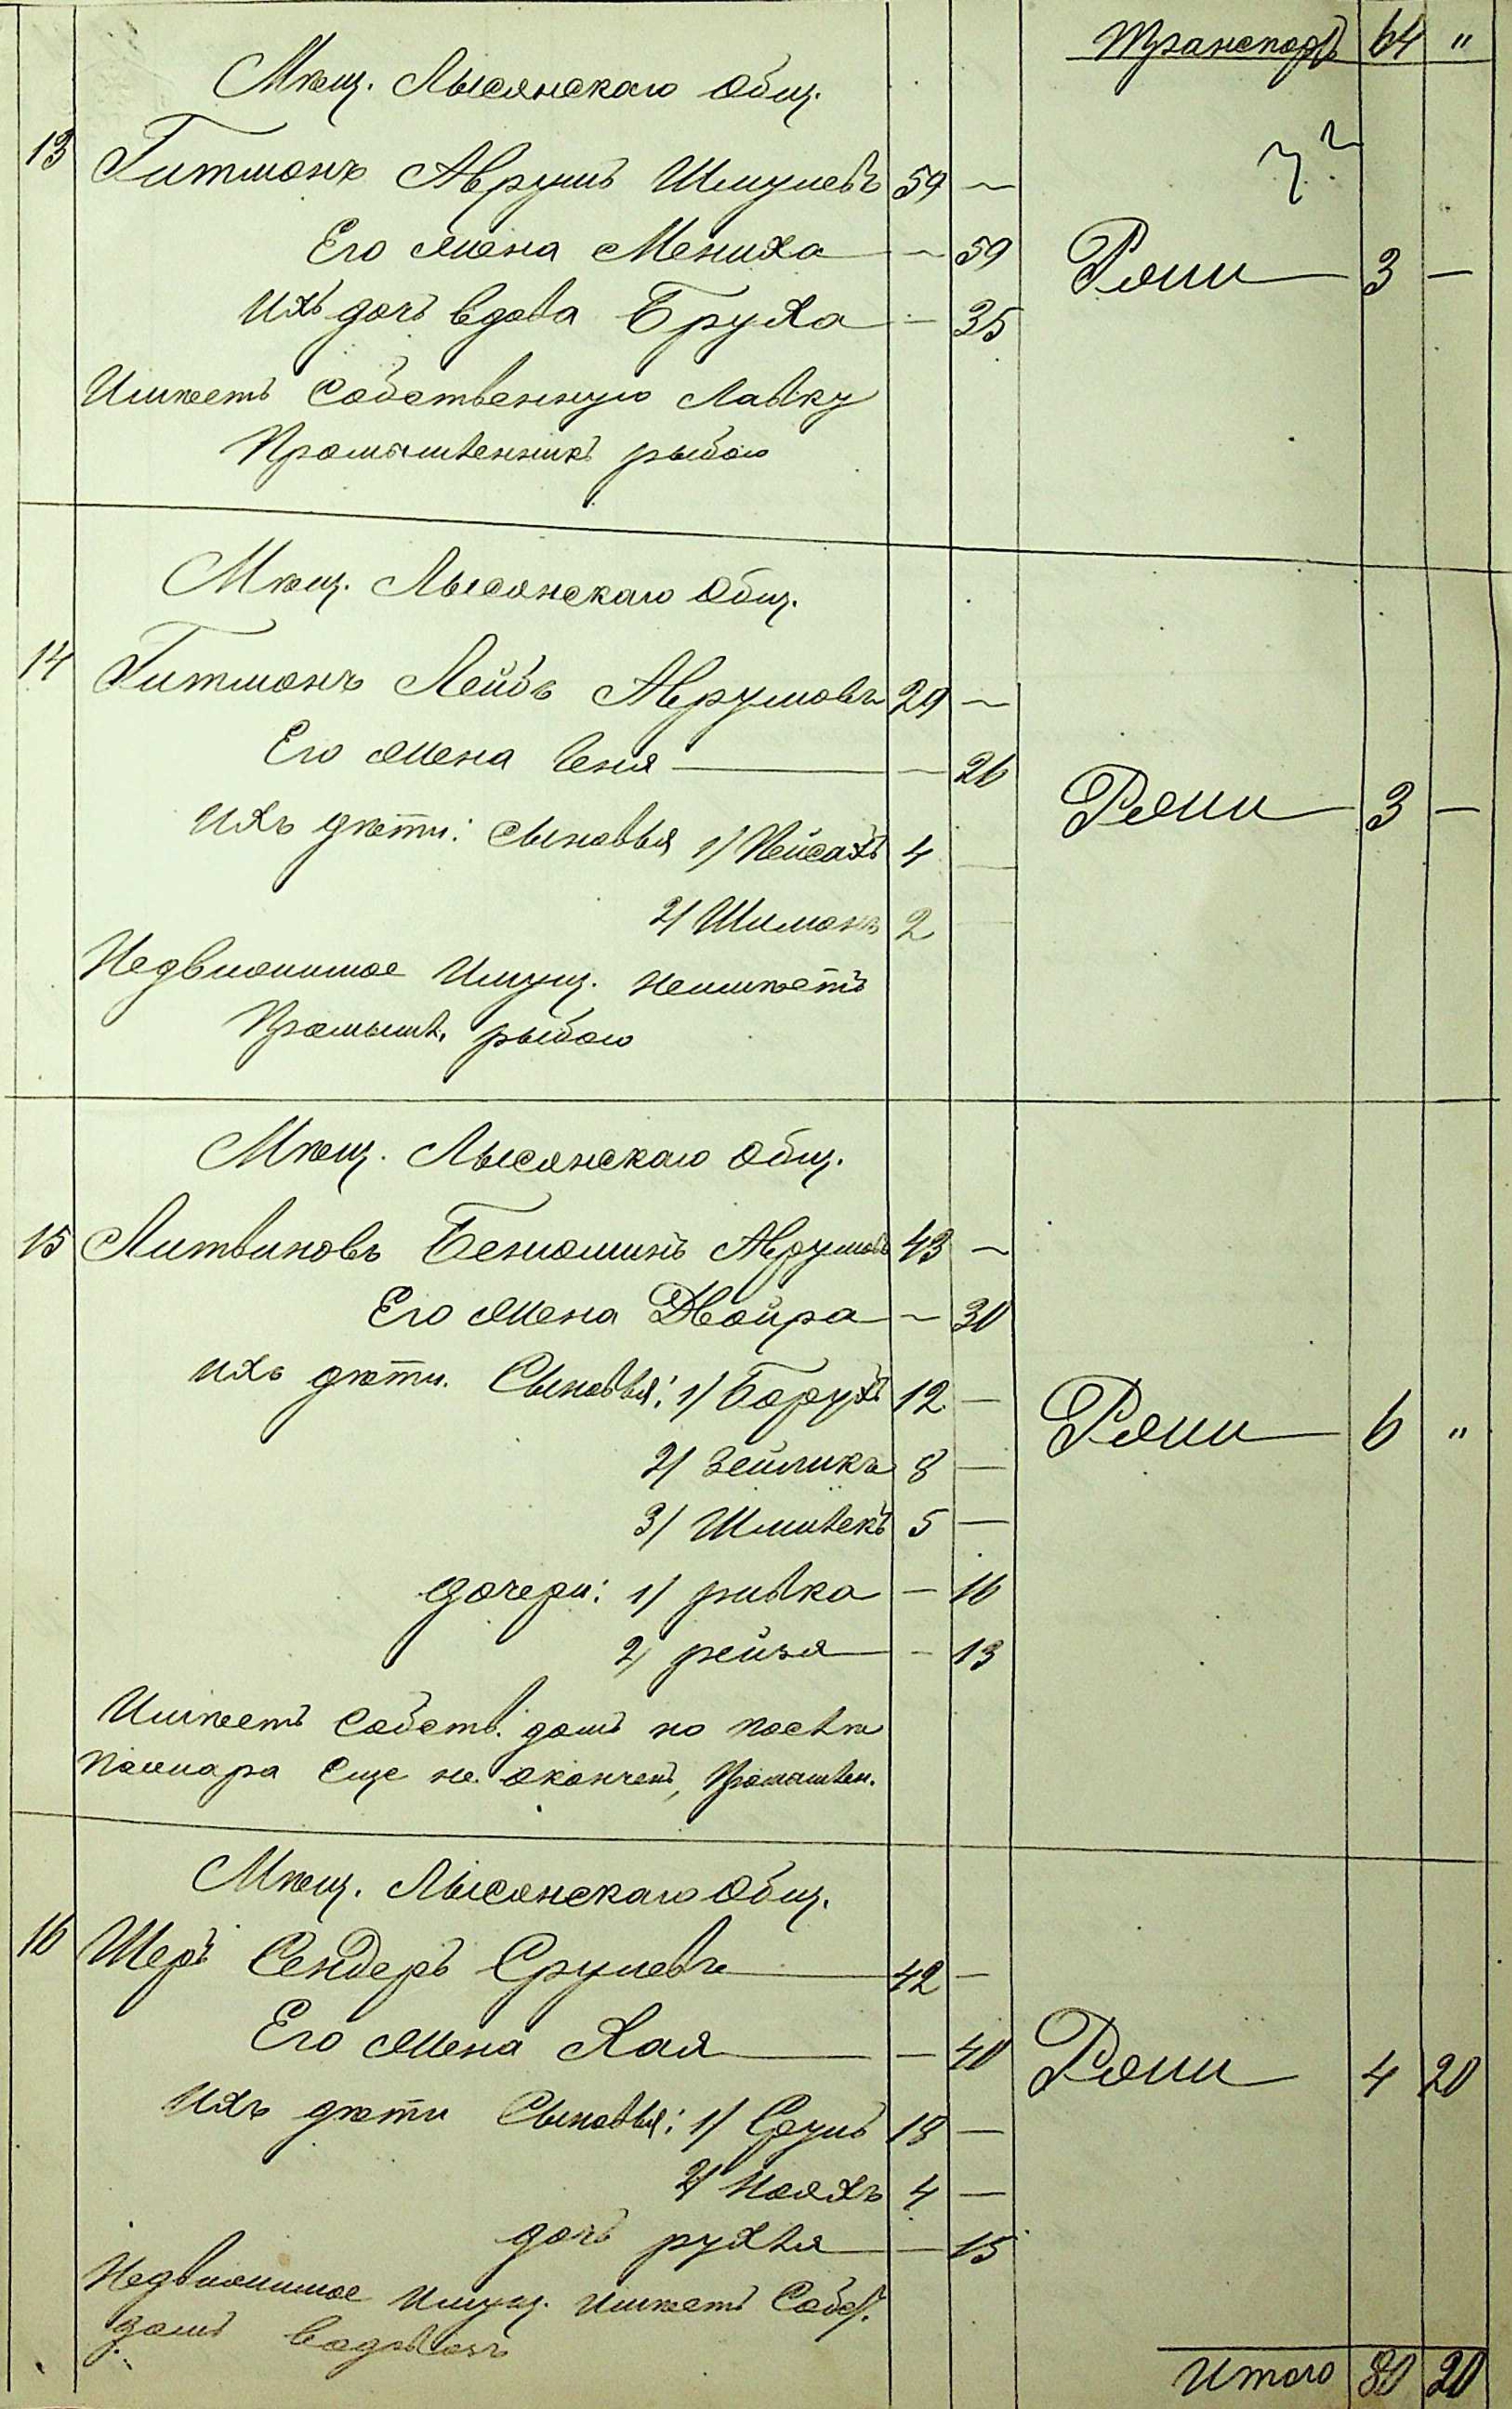 Транспортъ 64 "
Мѣщ. Лысянскаго Общ.
13 Гитманъ Аврумъ Шмулевъ 59 —
Его жена Мениха — 59 Рони 3 —
Ихъ дочь вдова Бруха — 35
Имѣетъ Собственную Лавку
Промышленникъ рыбою
Мѣщ. Лысянскаго Общ.
14 Гитманъ Лейбъ Аврумовъ 29 —
Его жена Сеня — 26 3 —
Ихъ дѣти: Сыновья 1/ Пейсахъ 4 —
2/ Шимонъ 2 —
Недвижимое Имущ. неимѣетъ
Промышл. рыбою
Мѣщ. Лысянскаго Общ.
15 Литвиновъ Бенюминъ Аврумовъ 43 —
Его жена Двойра — 30
Ихъ дѣти. Сыновья: 1/ Борухъ 12 — 6 "
2/ Зейликъ 8 —
3/ Шмилекъ 5 —
дочери: 1/ ривка — 16
2/ рейзя — 13
Имѣетъ Собств. домъ но послѣ
пожара Еще не окончен, Промышлен.
Мѣщ. Лысянскаго Общ.
16 Шеръ Сендеръ Срулевъ 42 —
Его жена Хая — 40 4 20
Ихъ дѣти Сыновья: 1/ Сруль 18 —
2/ Нояхъ 4 —
дочь рухля — 15
Недвижимое Имущ. имѣетъ Собст.
домъ водовозъ
Итого 80 20